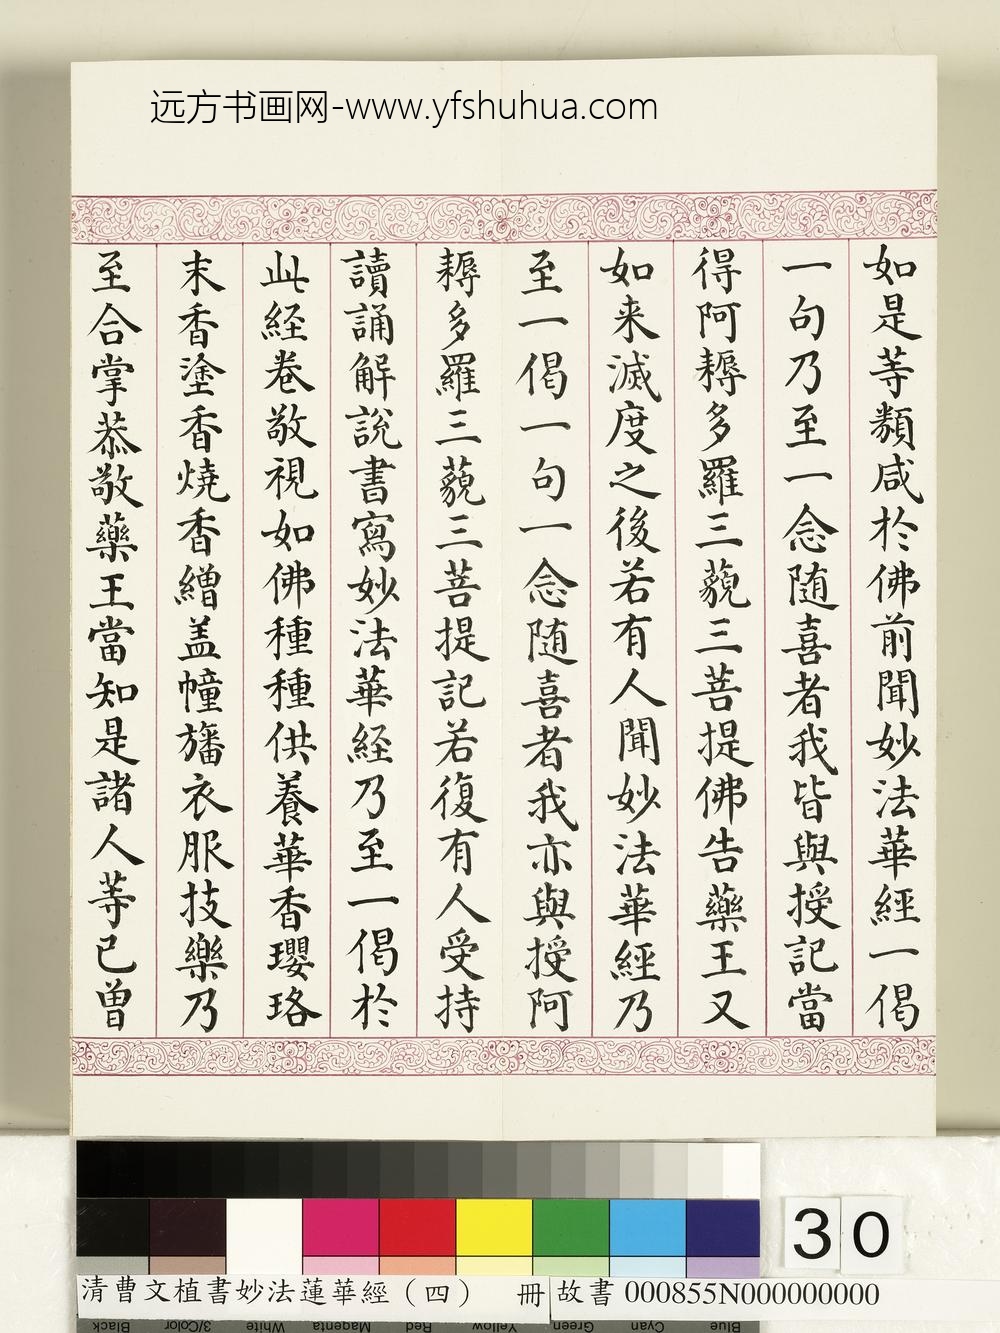 远方书画网-www.yfshuhua.com
如是等類咸於佛前聞妙法華經一偈
一句乃至一念随喜者我皆與授記當
得阿耨多羅三藐三菩提佛告藥王又
如来滅度之後若有人聞妙法華經乃
至一偈一句一念随喜者我亦與授阿
耨多羅三藐三菩提記若復有人受持
讀誦解說書寫妙法華経乃至一偈於
此経卷敬視如佛種種供養華香瓔珞
末香塗香燒香繒盖幢旛衣服技樂乃
至合掌恭敬藥王當知是諸人等已曽
30
清曹文植書妙法蓮華經（四） 冊
故書 000855N000000000
Black 3/Color White Magenta Red Yellow Green Cyan Blue